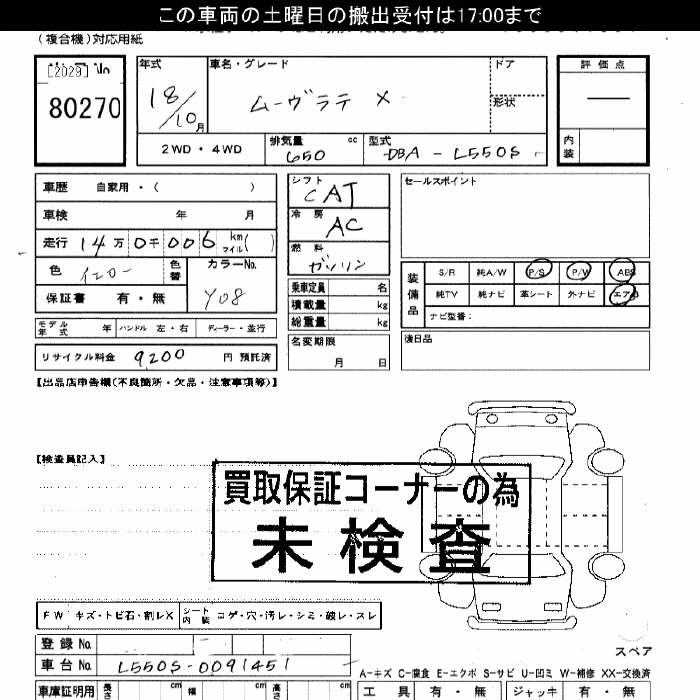 この車両の土曜日の搬出受付は17:00まで
(複合機)対応用紙
[2029] No
80270
年式 18/10月
車名・グレード ムーヴラテ X
ドア
形状
評価点 —
内装
2WD・4WD
排気量 650 cc
型式 DBA-L550S
車歴 自家用・( )
車検 年 月
走行 14万0千006 km マイル( )
色 イエロー 色替
カラーNo. Y08
保証書 有・無
モデル年式 年 ハンドル 左・右 ディーラー・並行
リサイクル料金 9200 円 預託済
シフト CAT
冷房 AC
燃料 ガソリン
乗車定員 名
積載量 kg
総重量 kg
名変期限 月 日
セールスポイント
装備品
S/R 純A/W P/S P/W ABS
純TV 純ナビ 革シート 外ナビ エアB
ナビ型番:
後日品
【出品店申告欄(不良箇所・欠品・注意事項等)】
【検査員記入】
買取保証コーナーの為
未検査
FW キズ・トビ石・割レX シート内装 コゲ・穴・汚レ・シミ・破レ・スレ
登録No.
車台No. L550S-0091451
スペア
A-キズ C-腐食 E-エクボ S-サビ U-凹ミ W-補修 XX-交換済
車庫証明用 長さ cm 幅 cm 高さ cm
工具 有・無 ジャッキ 有・無